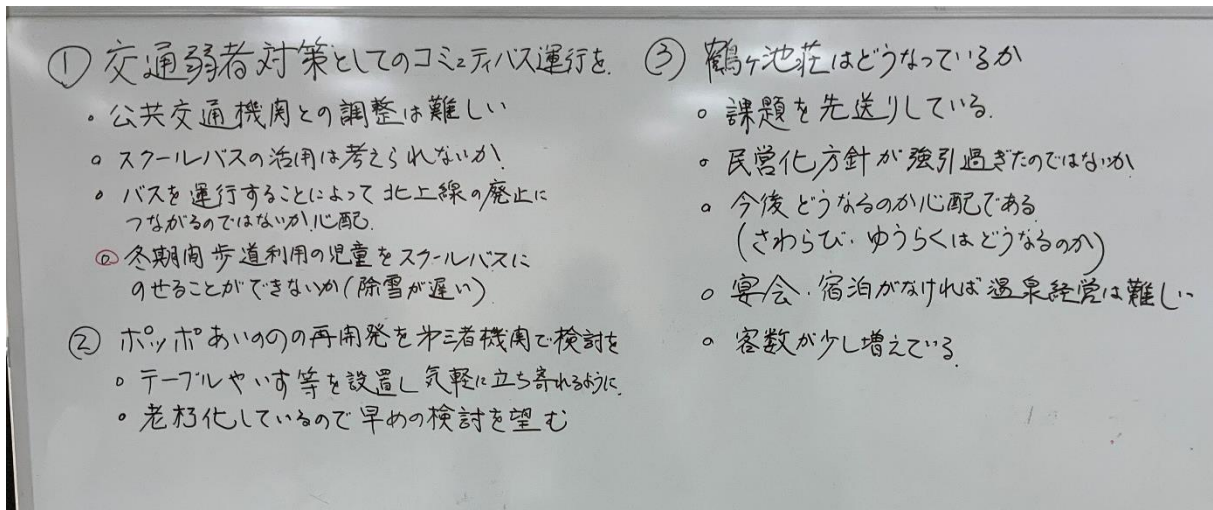 ① 交通弱者対策としてのコミュニティバス運行を.
。公共交通機関との調整は難しい
。スクールバスの活用は考えられないか.
。バスを運行することによって北上線の廃止に
つながるのではないか心配.
◎ 冬期間歩道利用の児童をスクールバスに
のせることができないか(除雪が遅い)
② ポッポあいののの再開発を第三者機関で検討を
。テーブルやいす等を設置し気軽に立ち寄れるように.
。老朽化しているので早めの検討を望む
③ 鶴ヶ池荘はどうなっているか
。課題を先送りしている.
。民営化方針が強引過ぎたのではないか
。今後どうなるのか心配である
(さわらび・ゆうらくはどうなるのか)
。宴会・宿泊がなければ温泉経営は難しい
。客数が少し増えている.